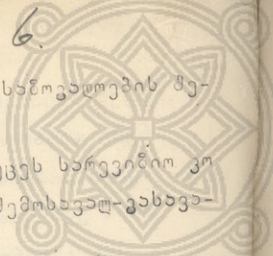 6.
საზოგადოების წე-
ცეს სარევიზიო კო
შემოსავალ-გასავა-